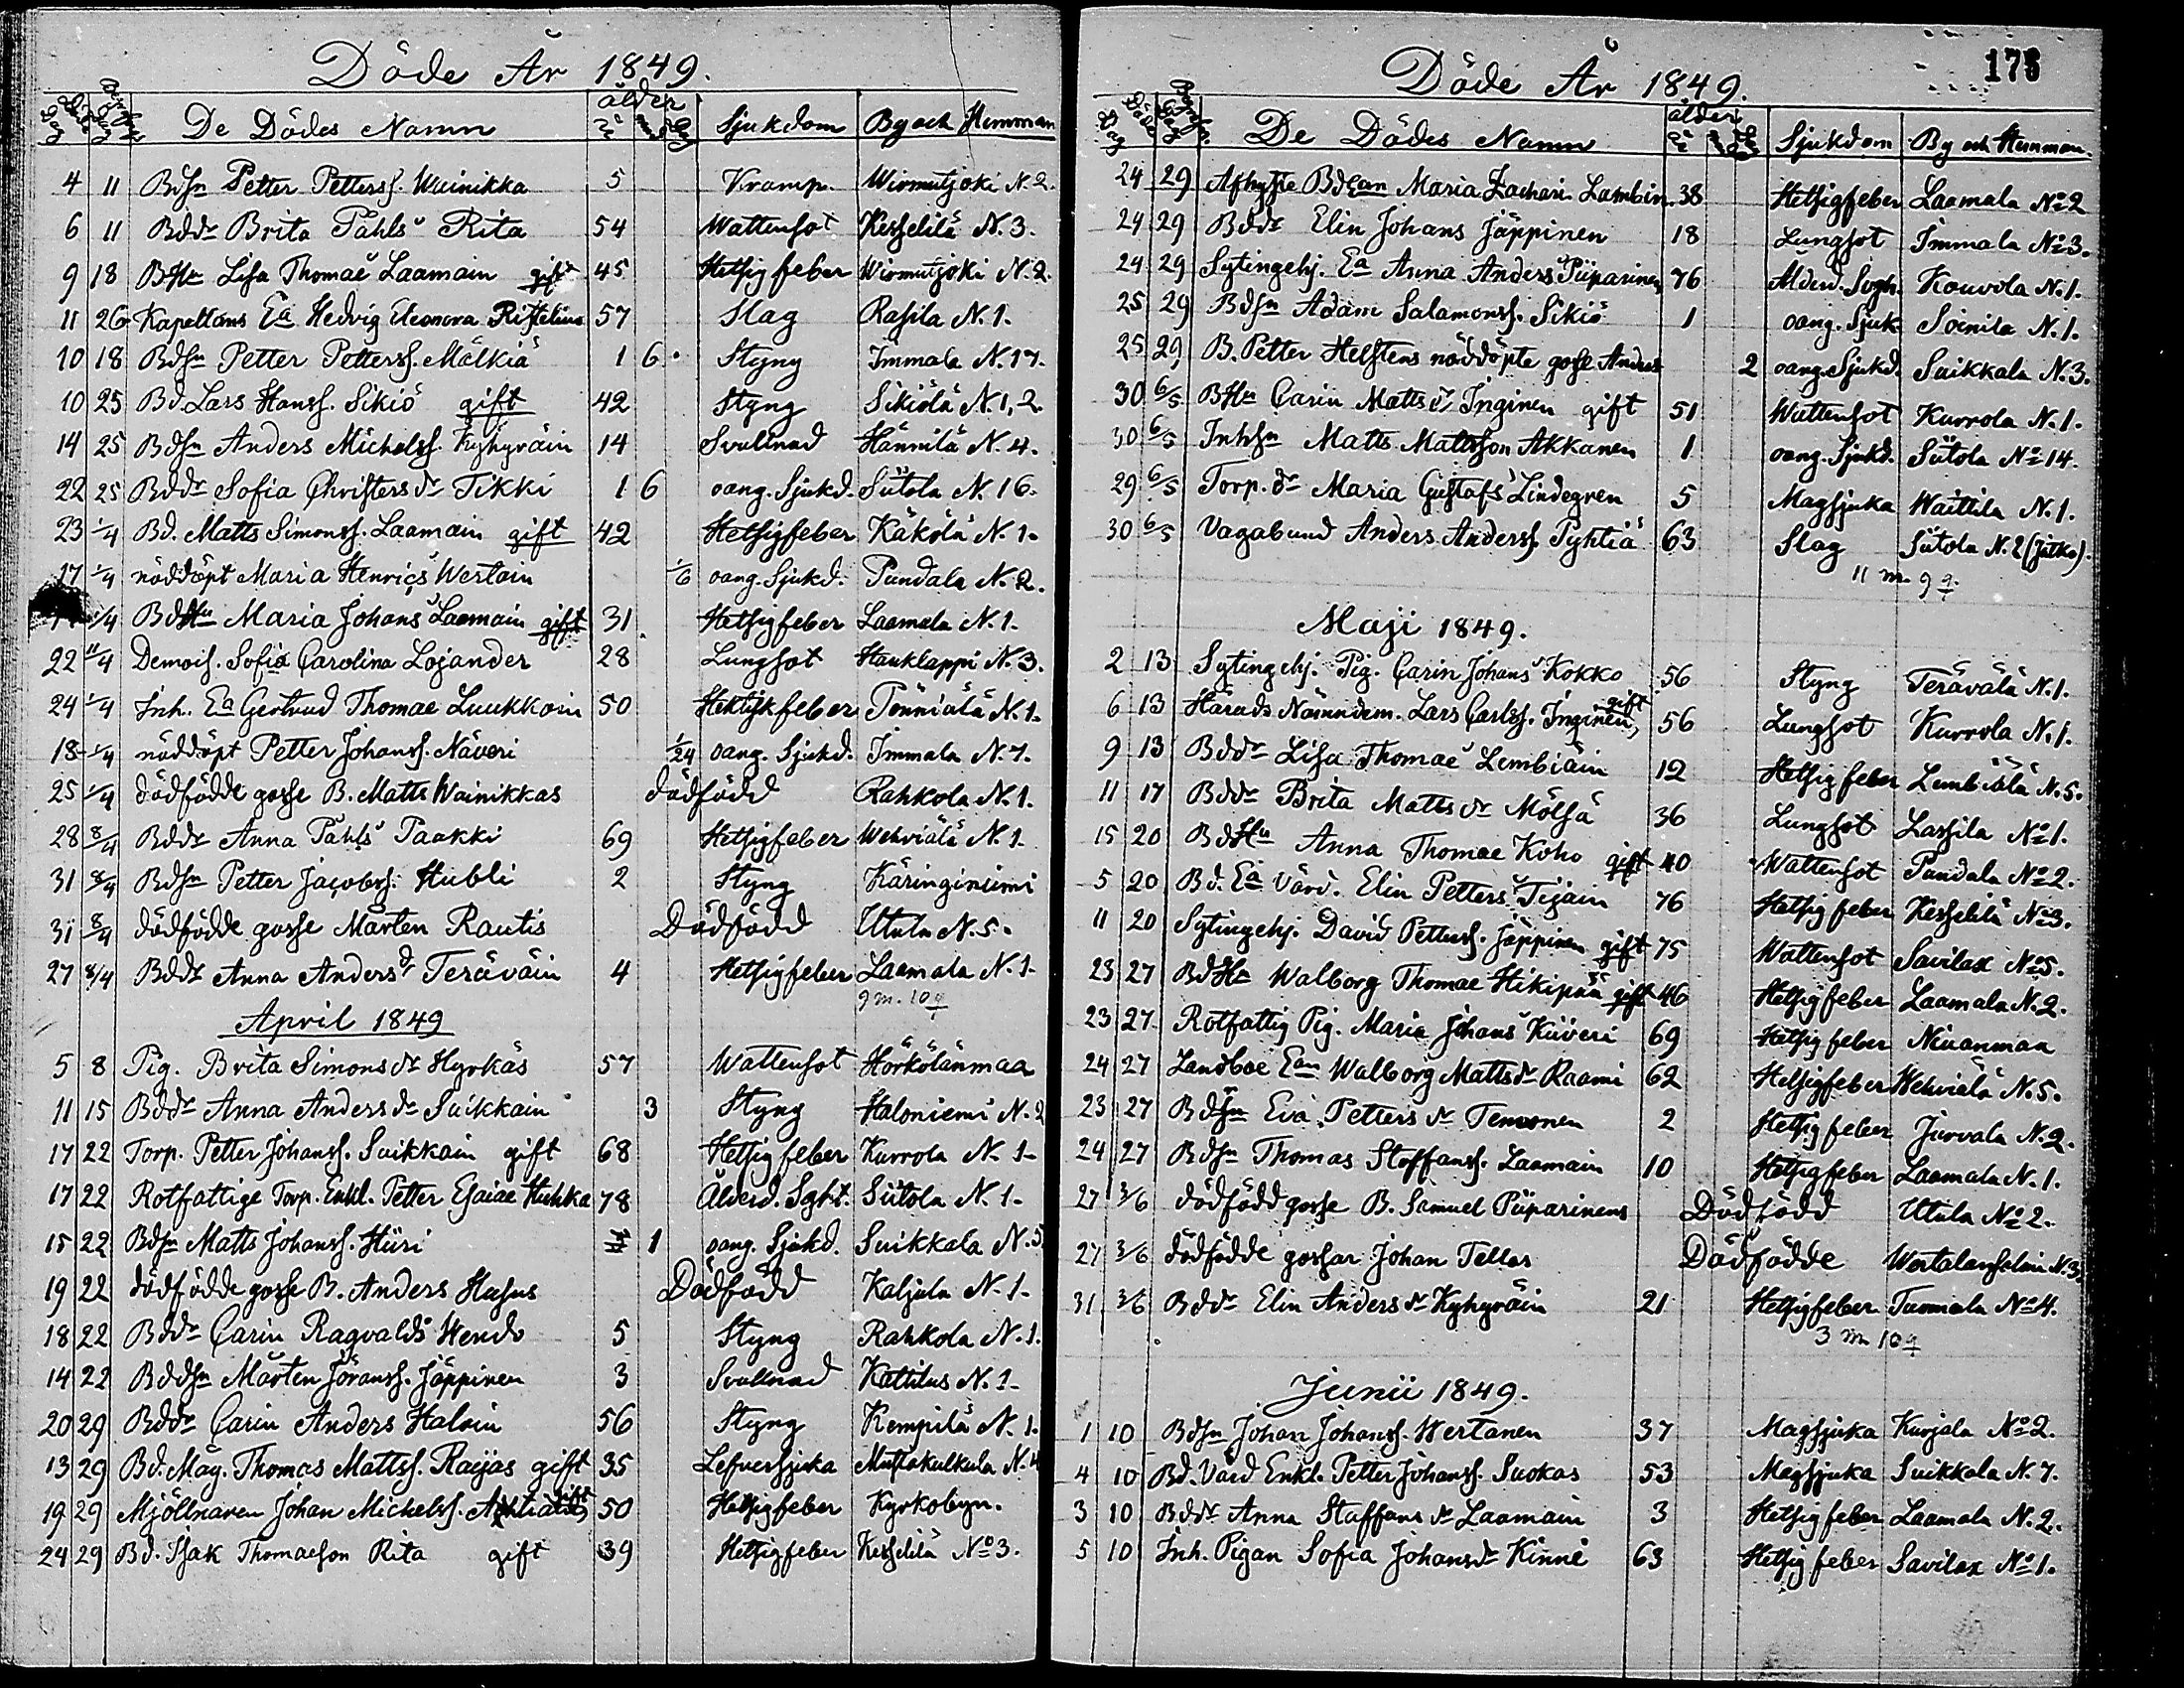 Döde År 1849.
De Dödes Namn ålder Sjukdom By och Hemman
4 11 Bdsn Petter Petterss. Wainikka 5 Kramp. Wirmutjoki N. 2.
6 11 Bddr Brita Påhls Rita 54 Wattensot Kesselilä N. 3.
9 18 BHu Lisa Thomae Laamain gift 45 Hetsigfeber Wirmutjoki N. 2.
11 26 Kapellans Ea Hedvig Eleonora Ristelius 57 Slag Rasila N. 1.
10 18 Bdsn Petter Petterss. Mälkiä 1 6 Styng Immala N. 17.
10 25 Bd Lars Hanss. Sikiö gift 42 Styng Sikiölä N. 1, 2.
14 25 Bdsn Anders Michelss. Kyhyräin 14 Svullnad Hännilä N. 4.
22 25 Bddr Sofia Christersdr Tikki 1 6 oang. Sjukd. Siitola N. 16.
23 1/4 Bd. Matts Simonss. Laamain gift 42 Hetsigfeber Käkölä N. 1.
17 1/4 nöddöpt Maria Henrics Westain 1/6 oang. Sjukd. Pundala N. 2.
1/4 BdHu Maria Johans Laamain gift 31 Hetsigfeber Laamala N. 1.
22 11/4 Demois. Sofia Carolina Lojander 28 Lungsot Hauklappi N. 3.
24 1/4 Inh. Ea Gertrud Thomae Luukkoin 50 Hektiskfeber Tönniälä N. 1.
18 1/4 nöddöpt Petter Johanss. Näveri 1/24 oang. Sjukd. Immala N. 7.
25 1/4 dödfödde gosse B. Matts Wainikkas dödfödd Rahkola N. 1.
28 8/4 Bddr Anna Påhls Paakki 69 Hetsigfeber Wehviälä N. 1.
31 8/4 Bdsn Petter Jacobss. Hubli 2 Styng Käringiniemi
31 8/4 dödfödde gosse Mårten Rautis Dödfödd Utula N. 5.
27 8/4 Bddr Anna Andersd Teräväin 4 Hetsigfeber Laamala N. 1.
9 m. 10 ♀
April 1849
5 8 Pig. Brita Simonsdr Hyrkäs 57 Wattensot Hörkölänmaa
11 15 Bddr Anna Andersdr Suikkain 3 Styng Haloniemi N. 2
17 22 Torp. Petter Johanss. Suikkain gift 68 Hetsigfeber Kurrola N. 1.
17 22 Rotfattige Torp. Enkl. Petter Esaiae Huhka 78 Ålderd. Sght. Siitola N. 1.
15 22 Bdsn Matts Johanss. Hiiri 1 oang. Sjukd. Suikkala N. 5
19 22 dödfödde gosse B. Anders Husus Dödfödd Kaljula N. 1.
18 22 Bddr Carin Ragvalds Wendo 5 Styng Rahkola N. 1.
14 22 Bddsn Mårten Göranss. Jäppinen 3 Svullnad Kattilus N. 1.
20 29 Bddr Carin Anders Haloin 56 Styng Kempilä N. 1.
13 29 Bd. Måg. Thomas Mattss. Raijas gift 35 Lefversjuka Mustakulkula N. 4
19 29 Mjöllnaren Johan Michelss. gift 50 Hetsigfeber Kyrkobyn.
24 29 Bd. Isak Thomaeson Rita gift 39 Hetsigfeber Kesselilä No 3.
175
Döde År 1849.
De Dödes Namn ålder Sjukdom By och Hemman.
24 29 Afhyste BdEan Maria Zachari Lambin 38 Hetsigfeber Laamala No 2
24 29 Bddr Elin Johans Jäppinen 18 Lungsot Immala No 3.
24 29 Sytingehj. Ea Anna Anders Piiparinen 76 Ålderd. Sygh. Kouvola N. 1.
25 29 Bdsn Adam Salamonss. Sikiö 1 oang. Sjuk. Soinila N. 1.
25 29 B. Petter Helstens nöddöpte gosse Anders 2 oang. Sjukd. Suikkala N. 3.
30 6/5 BHu Carin Mattsdr Inginen gift 51 Wattensot Kurrola N. 1.
30 6/5 Inhsn Matts Mattsson Akkanen 1 oang. Sjukd. Siitola No 14.
29 6/5 Torp. dr Maria Gustafs Lindegren 5 Magsjuka Waittila N. 1.
30 6/5 Vagabund Anders Anderss. Pyhtiä 63 Slag Siitola N. 2 (Jätko).
11 m. 9 ♀.
Maji 1849.
2 13 Sytingehj. Pig. Carin Johans Kokko 56 Styng Terävälä N. 1.
6 13 Härads Nämndem. Lars Carlss. Inginen, gift 56 Lungsot Kurrola N. 1.
9 13 Bddr Lisa Thomae Lembiäin 12 Hetsigfeber Lembiälä N. 5.
11 17 Bddr Brita Mattsdr Mölsä 36 Lungsot Lassila No 1.
15 20 BdHu Anna Thomae Koho gift 40 Wattensot Pundala No 2.
5 20 Bd. Ea Värd. Elin Petters Tijain 76 Hetsigfeber Kesselilä No 3.
11 20 Sytingehj. David Petterss. Jäppinen gift 75 Wattensot Savilax No 5.
23 27 BdHu Walborg Thomae Hikipää gift 46 Hetsigfeber Laamala N. 2.
23 27 Rotfattig Pig. Maria Johans Kiiveri 69 Hetsigfeber Niuanmaa
24 27 Landboe Ean Walborg Mattsdr Raami 62 Hetsigfeber Wehviälä N. 5.
23 27 Bdsn Eva Pettersdr Temonen 2 Hetsigfeber Jurvala N. 2.
24 27 Bdsn Thomas Staffanss. Laamain 10 Hetsigfeber Laamala N. 1.
27 3/6 dödfödd gosse B. Samuel Piiparinens Dödfödd Utula No 2.
27 3/6 dödfödde gossar Johan Tellas Dödfödde N. 3.
31 3/6 Bddr Elin Andersdr Kyhyräin 21 Hetsigfeber Tuomala No 4.
3 m 10 ♀
Junii 1849.
1 10 Bdsn Johan Johanss. Wertanen 37 Magsjuka Kurjala No 2.
4 10 Bd. Värd Enkl. Petter Johanss. Suokas 53 Magsjuka Suikkala N. 7.
3 10 Bddr Anna Staffansdr Laamain 3 Hetsigfeber Laamala N. 2.
5 10 Inh. Pigan Sofia Johansdr Kinni 63 Hetsigfeber Savilax No 1.